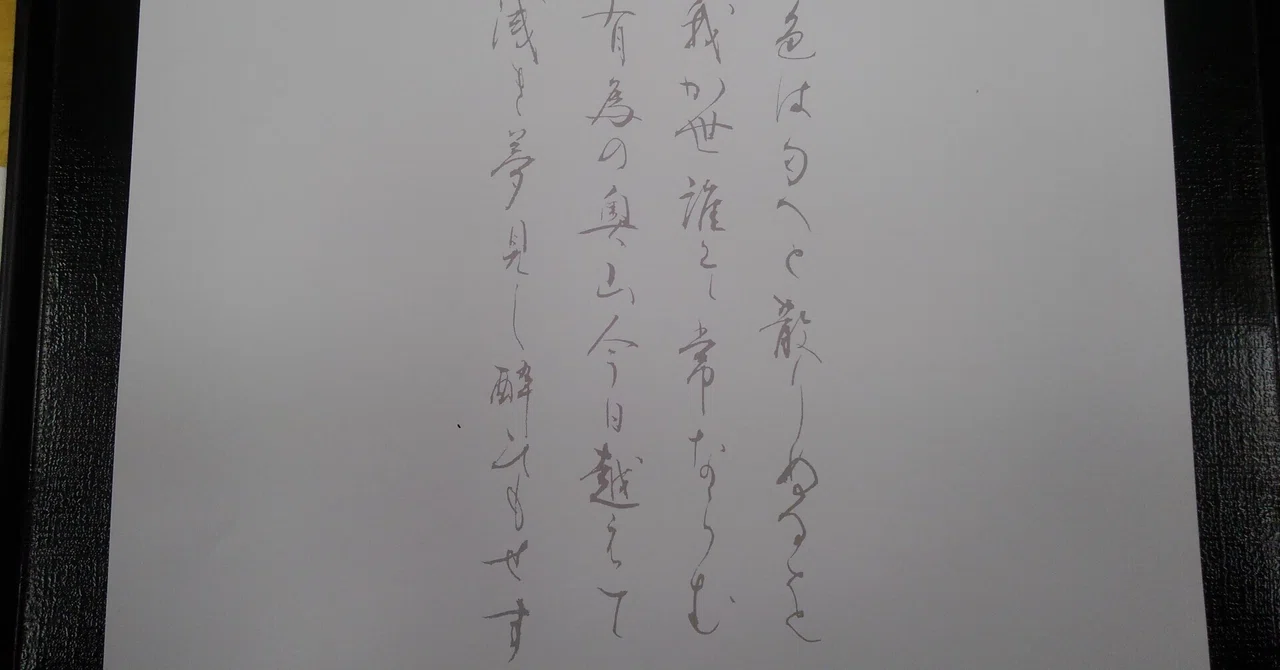 色は匂へと散りぬるを
我か世誰そ常ならむ
有為の奥山今日越えて
浅き夢見し酔ひもせす